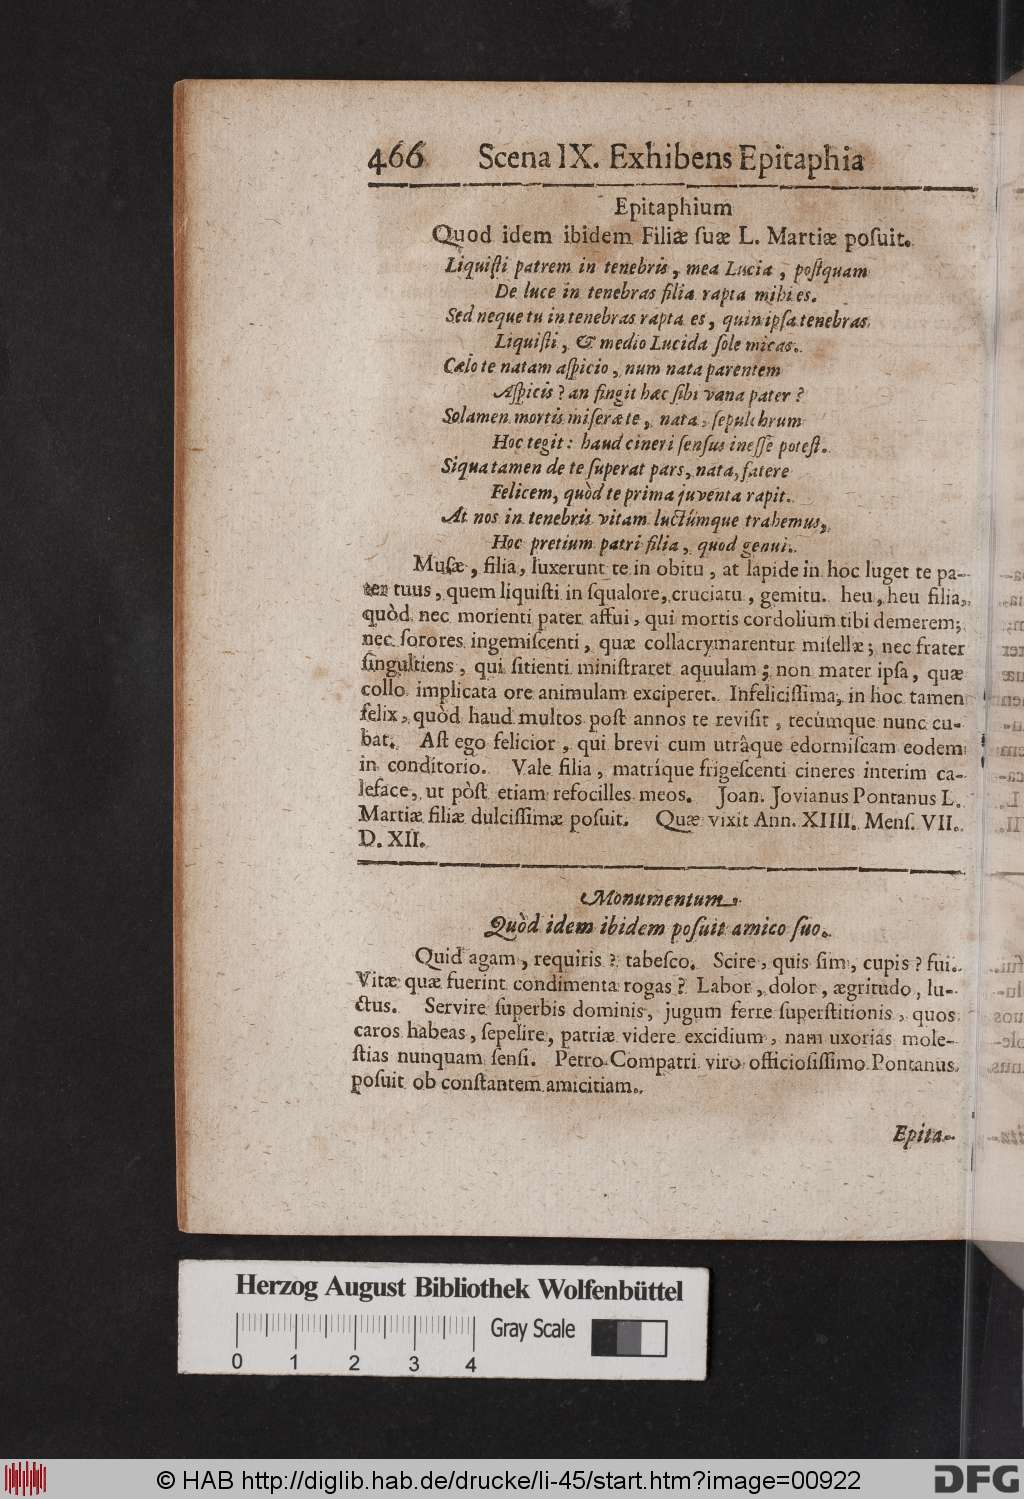 466 Scena IX. Exhibens Epitaphia
Epitaphium
Quod idem ibidem Filiæ ſuæ L. Martiæ poſuit.
Liquiſti patrem in tenebris, mea Lucia, poſtquam
De luce in tenebras filia rapta mihi es.
Sed neque tu in tenebras rapta es, quin ipſa tenebras
Liquiſti, & medio Lucida ſole micas.
Cælo te natam aſpicio, num nata parentem
Aſpicis? an fingit hæc ſibi vana pater?
Solamen mortis miſeræ te, nata, ſepulchrum
Hoc tegit: haud cineri ſenſus ineſſe poteſt.
Siqua tamen de te ſuperat pars, nata, fatere
Felicem, quòd te prima juventa rapit.
At nos in tenebris vitam luctúmque trahemus,
Hoc pretium patri filia, quod genui.
Muſæ, filia, luxerunt te in obitu, at lapide in hoc luget te pa-
ter tuus, quem liquiſti in ſqualore, cruciatu, gemitu. heu, heu filia,
quòd nec morienti pater affui, qui mortis cordolium tibi demerem;
nec ſorores ingemiſcenti, quæ collacrymarentur miſellæ; nec frater
ſingultiens, qui ſitienti miniſtraret aquulam; non mater ipſa, quæ
collo implicata ore animulam exciperet. Infeliciſſima, in hoc tamen
felix, quòd haud multos poſt annos te reviſit, tecúmque nunc cu-
bat. Aſt ego felicior, qui brevi cum utrâque edormiſcam eodem
in conditorio. Vale filia, matríque frigeſcenti cineres interim ca-
leface, ut pòſt etiam refocilles meos. Joan. Jovianus Pontanus L.
Martiæ filiæ dulciſſimæ poſuit. Quæ vixit Ann. XIIII. Menſ. VII.
D. XII.
Monumentum
Quòd idem ibidem poſuit amico ſuo.
Quid agam, requiris? tabeſco. Scire, quis ſim, cupis? fui.
Vitæ quæ fuerint condimenta rogas? Labor, dolor, ægritudo, lu-
ctus. Servire ſuperbis dominis, jugum ferre ſuperſtitionis, quos
caros habeas, ſepelire, patriæ videre excidium, nam uxorias mole-
ſtias nunquam ſenſi. Petro Compatri viro officioſiſſimo Pontanus
poſuit ob conſtantem amicitiam.
Epita-
Herzog August Bibliothek Wolfenbüttel
Gray Scale
0 1 2 3 4
© HAB http://diglib.hab.de/drucke/li-45/start.htm?image=00922
DFG